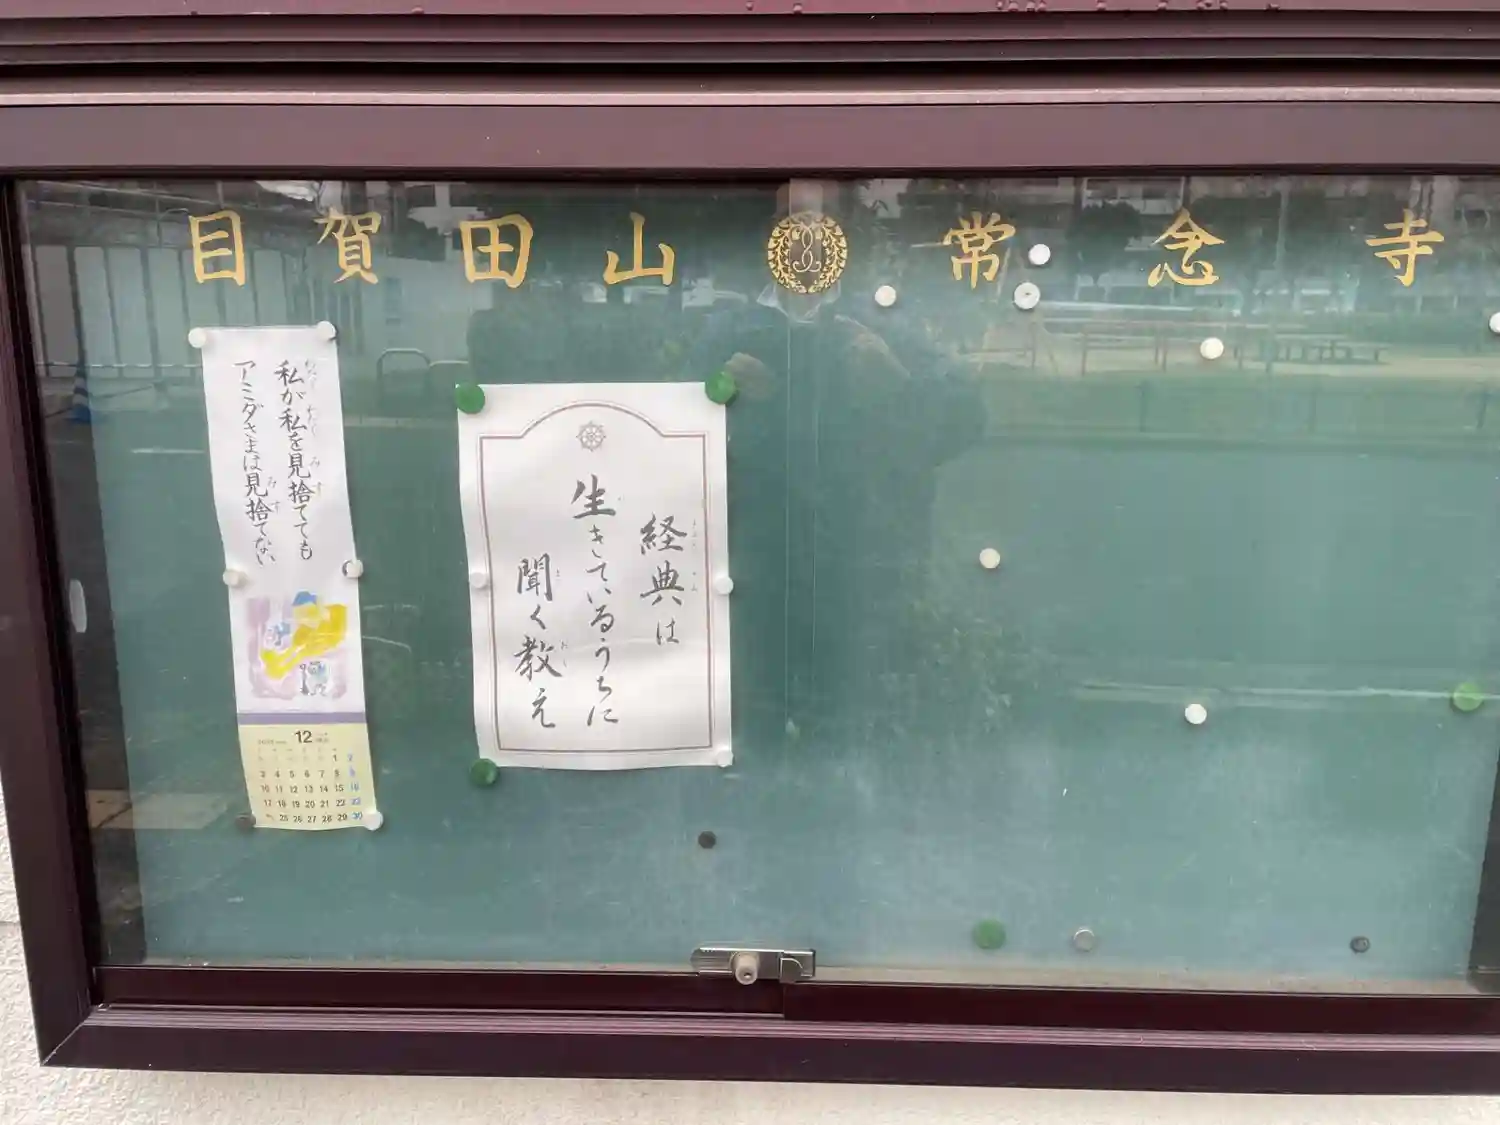 目賀田山 常念寺
私が私を見捨てても
アミダさまは見捨てない
経典は
生きているうちに
聞く教え
12
1 2
3 4 5 6 7 8 9
10 11 12 13 14 15 16
17 18 19 20 21 22 23
25 26 27 28 29 30